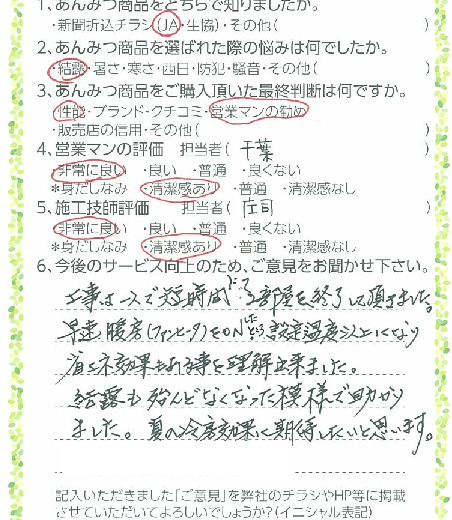 1、あんみつ商品をどちらで知りましたか。
・新聞折込チラシ・JA・生協・その他( )
2、あんみつ商品を選ばれた際の悩みは何でしたか。
・結露・暑さ・寒さ・西日・防犯・騒音・その他( )
3、あんみつ商品をご購入頂いた最終判断は何ですか。
・性能・ブランド・クチコミ・営業マンの勧め
・販売店の信用・その他( )
4、営業マンの評価 担当者( 千葉 )
・非常に良い ・良い ・普通 ・良くない
*身だしなみ ・清潔感あり ・普通 ・清潔感なし
5、施工技師評価 担当者( 庄司 )
・非常に良い ・良い ・普通 ・良くない
*身だしなみ ・清潔感あり ・普通 ・清潔感なし
6、今後のサービス向上のため、ご意見をお聞かせ下さい。
工事はスムースで短時間で 部屋を終了して頂きました。
早速暖房(ファンヒータ)をONしたら設定温度以上になり
省エネ効果もある事を理解出来ました。
結露も殆んどなくなった模様で助かり
ました。夏の冷房効果に期待したいと思います。
記入いただきました「ご意見」を弊社のチラシやHP等に掲載
させていただいてよろしいでしょうか?(イニシャル表記)